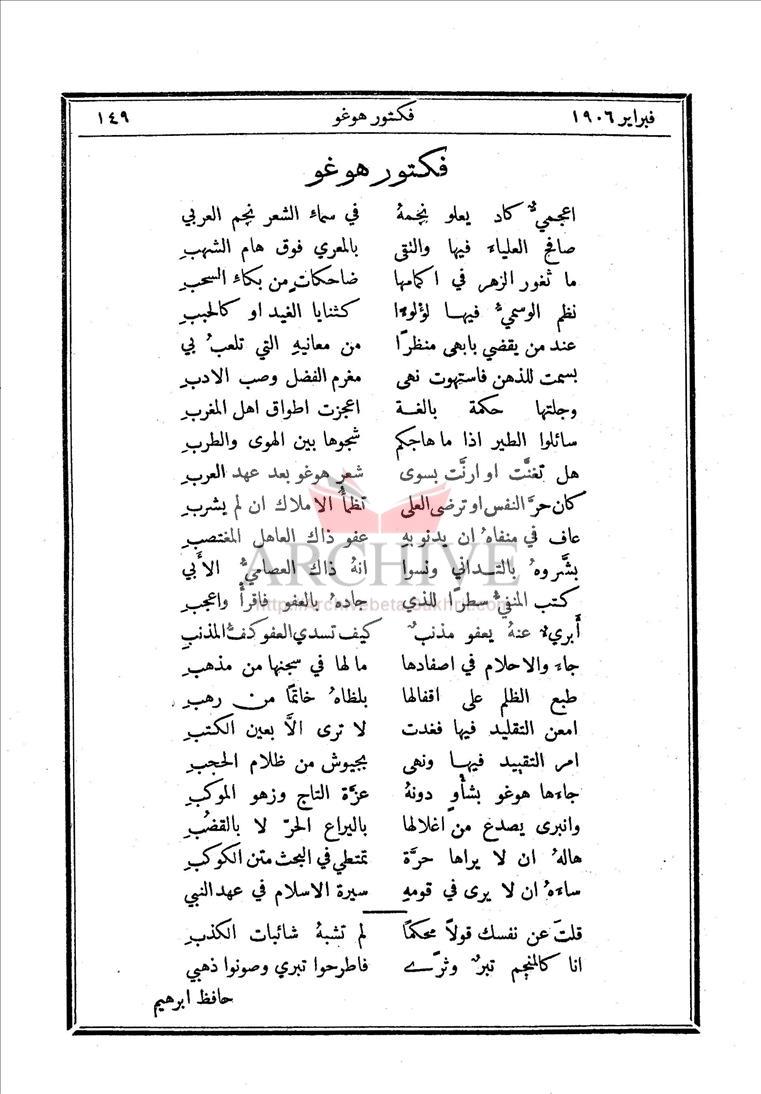 فبراير ١٩٠٦ فكتور هوغو ١٤٩
فكتور هوغو
اعجميٌّ كاد يعلو نجمهُ في سماءُ الشعر نجم العربي
صافح العلياءَ فيها والتقى بالمعري فوق هام الشهبِ
ما ثغور الزهر في اكمامها ضاحكاتٍ من بكاءِ السحبِ
نظم الوسميُّ فيها لؤلوءًا كثنايا الغيد او كالحببِ
عند من يقضي بابهى منظرًا من معانيهِ التي تلعبُ بي
بسمت للذهن فاستهوت نهى مغرم الفضل وصب الادبِ
وجلتها حكمة بالغة اعجزت اطواق اهل المغربِ
سائلوا الطير اذا ما هاجكم شجوها بين الهوى والطربِ
هل تغنَّت او ارنَّت بسوى شعر هوغو بعد عهد العربِ
كان حرَّ النفس او ترضى العلى تظمأُ الاملاك ان لم يشربِ
عاف في منفاهُ ان يدنو بهِ عفو ذاك العاهل المغتصبِ
بشَّروهُ بالتداني ونسوا انهُ ذاك العصاميُّ الأَبي
كتب المنفيُّ سطرًا للذي جادهُ بالعفو فاقرأْ واعجبِ
أَبريءٌ عنهُ يعفو مذنبٌ كيف تسدي العفو كفُّ المذنبِ
جاءَ والاحلام في اصفادها ما لها في سجنها من مذهبِ
طبع الظلم على اقفالها بلظاهُ خاتمًا من رهبِ
امعن التقليد فيها فغدت لا ترى الاَّ بعين الكتبِ
امر التقييد فيها ونهى بجيوش من ظلام الحجبِ
جاءَها هوغو بشأوٍ دونهُ عزَّة التاج وزهو الموكبِ
وانبرى يصدع من اغلالها باليراع الحرّ لا بالقضُبِ
هالهُ ان لا يراها حرَّة تمتطي في البحث متن الكوكبِ
ساءَهُ ان لا يرى في قومهِ سيرة الاسلام في عهد النبي
قلتَ عن نفسك قولاً محكمًا لم تشبهُ شائبات الكذبِ
انا كالمنجم تبرٌ وثرًى فاطرحوا تبري وصونوا ذهبي
حافظ ابرهيم
ARCHIVE